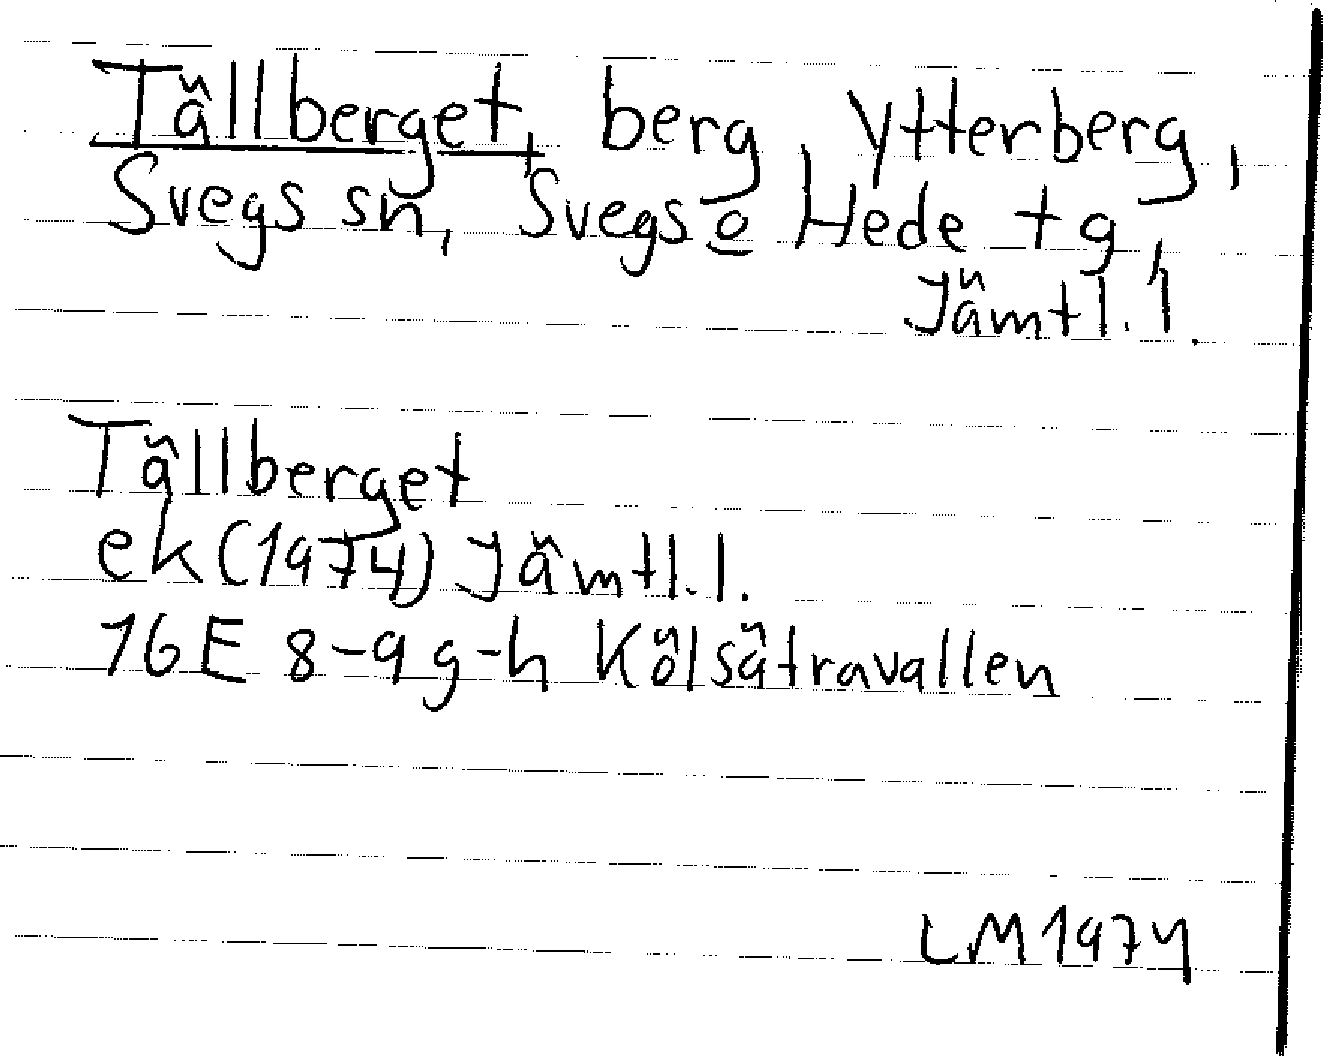 Tällberget, berg, Ytterberg,
Svegs sn, Svegs o Hede tg,
Jämtl. l.
Tällberget
ek (1974) Jämtl. l.
16E 8-9 g-h Kölsätravallen
LM 1974